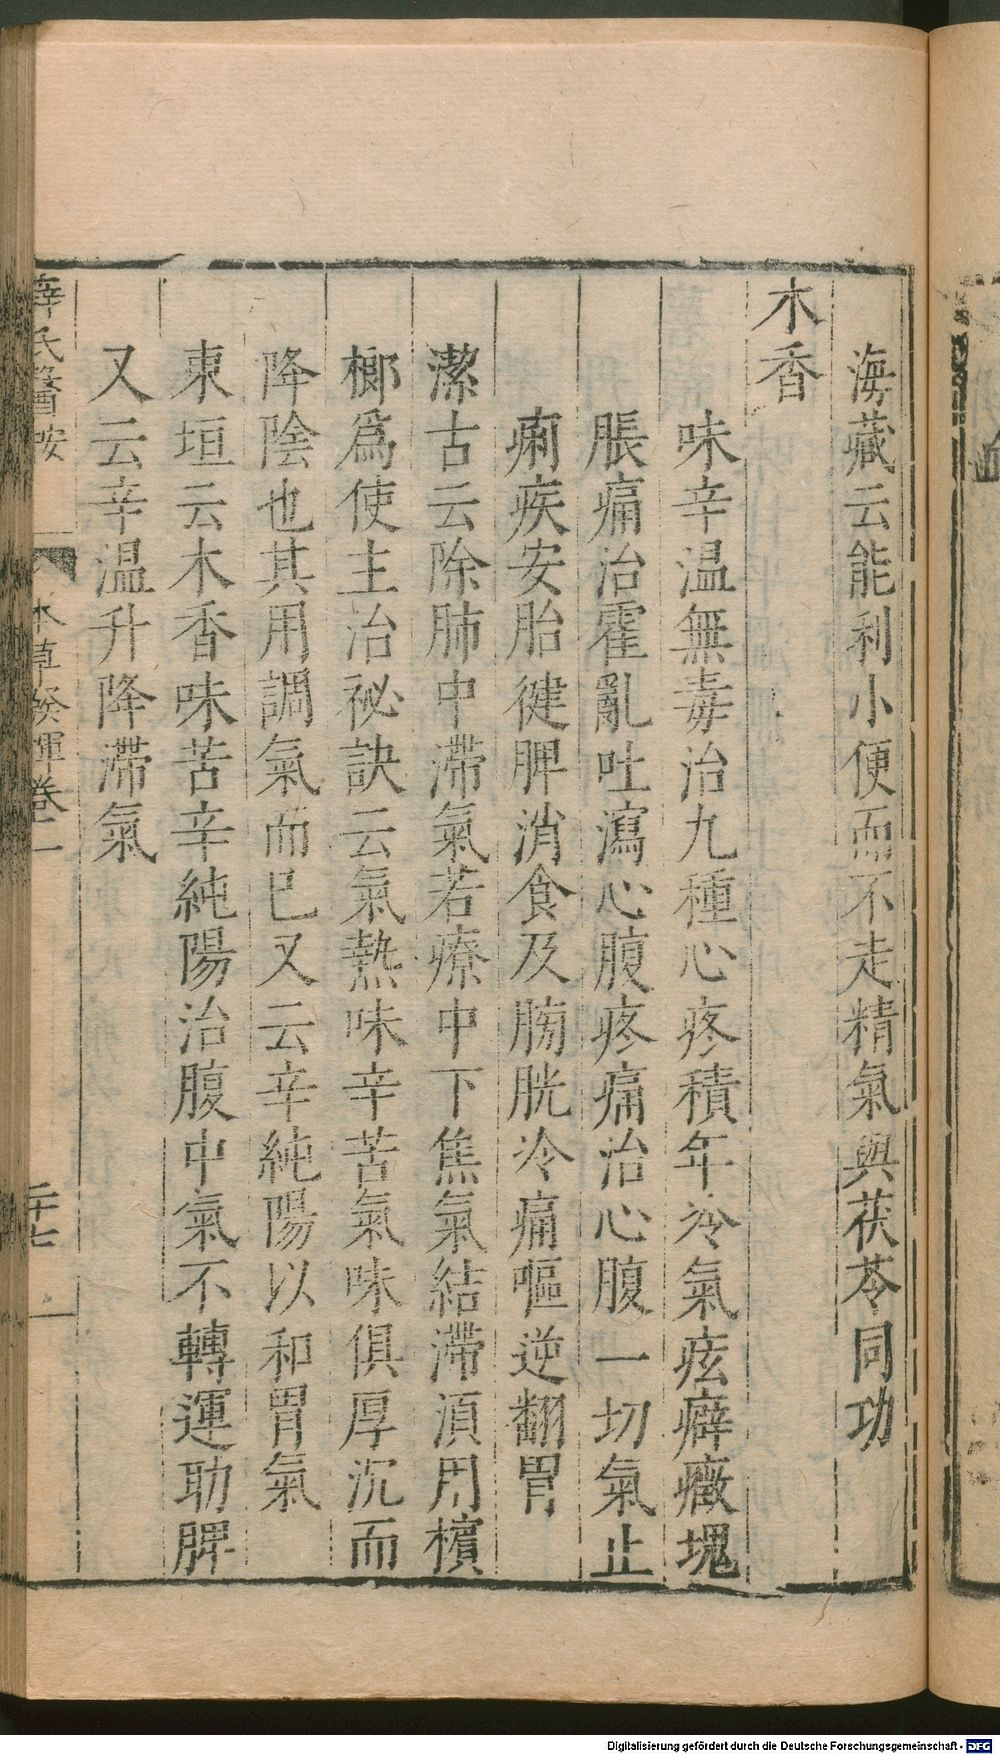 海藏云能利小便而不走精氣與茯苓同功
木香
味辛温無毒治九種心疼積年冷氣痃癖癥塊
脹痛治霍亂吐瀉心腹疼痛治心腹一切氣止
痢疾安胎健脾消食及膀胱冷痛嘔逆翻胃
潔古云除肺中滯氣若療中下焦氣結滯須用檳
榔爲使主治祕訣云氣熱味辛苦氣味俱厚沉而
降陰也其用調氣而已又云辛純陽以和胃氣
東垣云木香味苦辛純陽治腹中氣不轉運助脾
又云辛温升降滯氣
薛氏醫按 本草發揮卷二 二十七
Digitalisierung gefördert durch die Deutsche Forschungsgemeinschaft - DFG